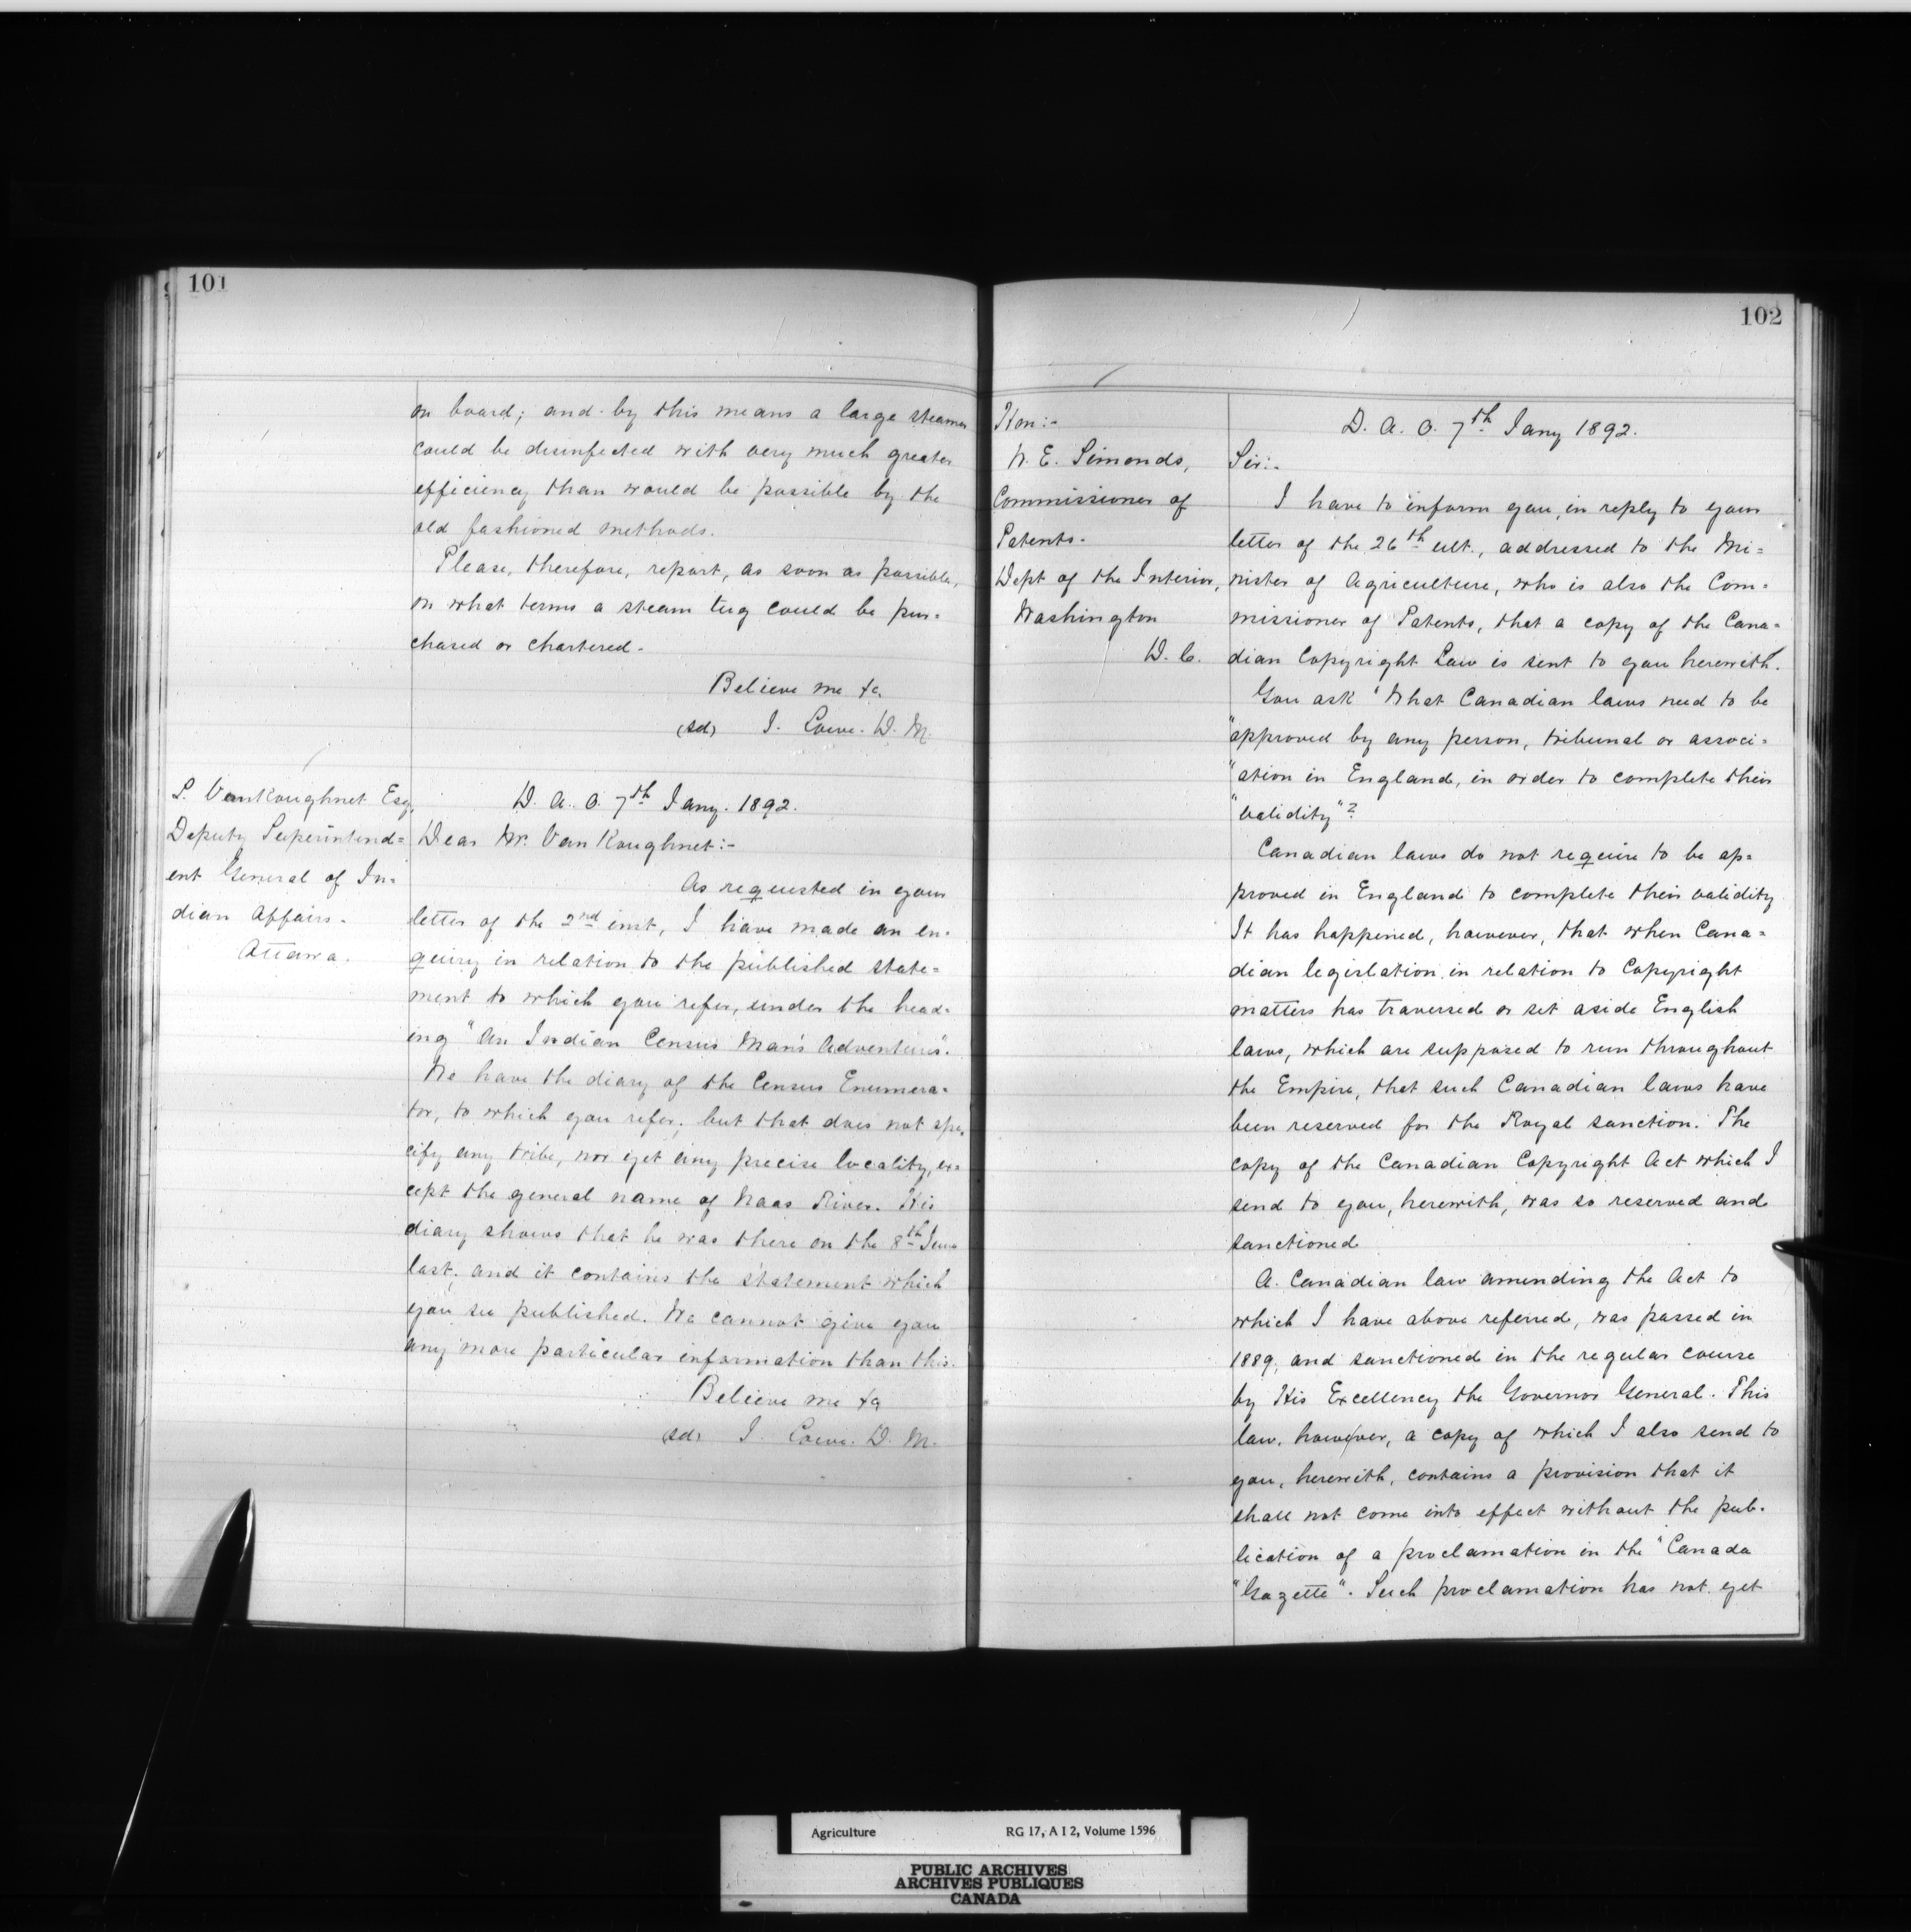 101
on board; and by this means a large steamer
could be disinfected with very much greater
efficiency than would be possible by the
old fashioned methods.
Please, therefore, report, as soon as possible,
on what terms a steam tug could be pur=
chased or chartered.
Believe me &c
(sd) J. Lowe. D. M.
L. VanKoughnet Esq.
Deputy Superintend=
ent General of In=
dian Affairs.
Ottawa.
D. A. O. 7th Jany. 1892.
Dear Mr. VanKoughnet:-
As requested in your
letter of the 2nd inst, I have made an en=
quiry in relation to the published state=
ment to which you refer, under the head=
ing "An Indian Census Man's Adventures".
We have the diary of the Census Enumera=
tor, to which you refer; but that does not spe=
cify any tribe, nor yet any precise locality, ex=
cept the general name of Naas River. His
diary shows that he was there on the 8th June
last; and it contains the statement which
you see published. We cannot give you
any more particular information than this.
Believe me &c
(sd) J. Lowe. D. M.
102
Hon:-
W. E. Simonds,
Commissioner of
Patents.
Dept of the Interior,
Washington
D. C.
D. A. O. 7th Jany 1892.
Sir:-
I have to inform you, in reply to your
letter of the 26th ult., addressed to the Mi=
nister of Agriculture, who is also the Com=
missioner of Patents, that a copy of the Cana=
dian Copyright Law is sent to you herewith.
You ask "What Canadian laws need to be
"approved by any person, tribunal or associ=
"ation in England, in order to complete their
"validity"?
Canadian laws do not require to be ap=
proved in England to complete their validity
It has happened, however, that when Cana=
dian legislation in relation to Copyright
matters has traversed or set aside English
laws, which are supposed to run throughout
the Empire, that such Canadian laws have
been reserved for the Royal sanction. The
copy of the Canadian Copyright Act which I
send to you, herewith, was so reserved and
sanctioned
A Canadian law amending the Act to
which I have above referred, was passed in
1889, and sanctioned in the regular course
by His Excellency the Governor General. This
law, however, a copy of which I also send to
you, herewith, contains a provision that it
shall not come into effect without the pub=
lication of a proclamation in the "Canada
"Gazette". Such proclamation has not yet
Agriculture RG 17, A I 2, Volume 1596
PUBLIC ARCHIVES
ARCHIVES PUBLIQUES
CANADA